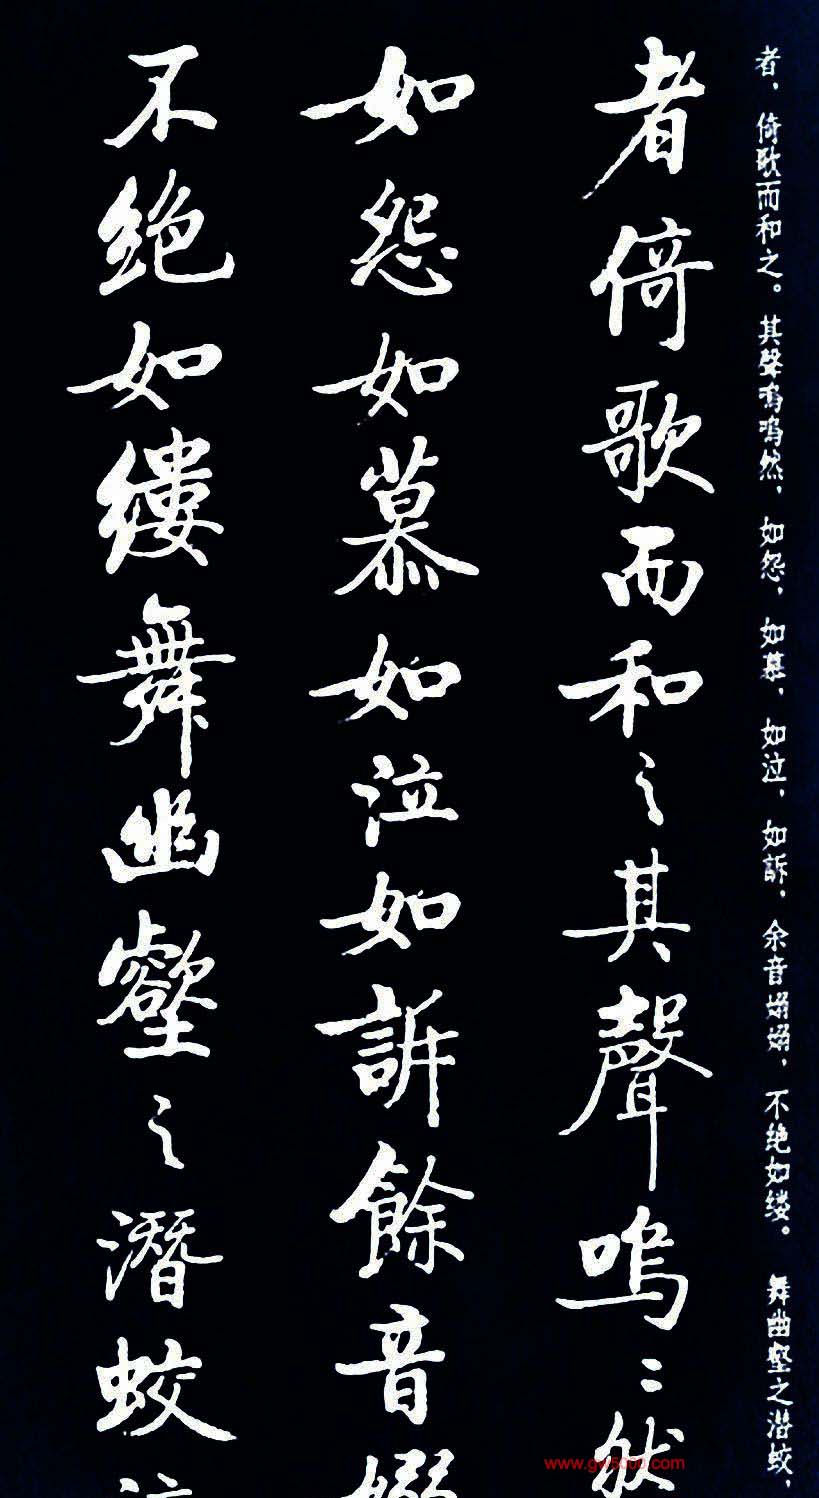 者，倚歌而和之。其聲嗚嗚然，如怨，如慕，如泣，如訴，余音嫋嫋，不绝如缕。 舞幽壑之潜蛟，
者倚歌而和之其聲嗚〻然
如怨如慕如泣如訴餘音
不绝如缕舞幽壑之潛蛟
www.gw8000.com